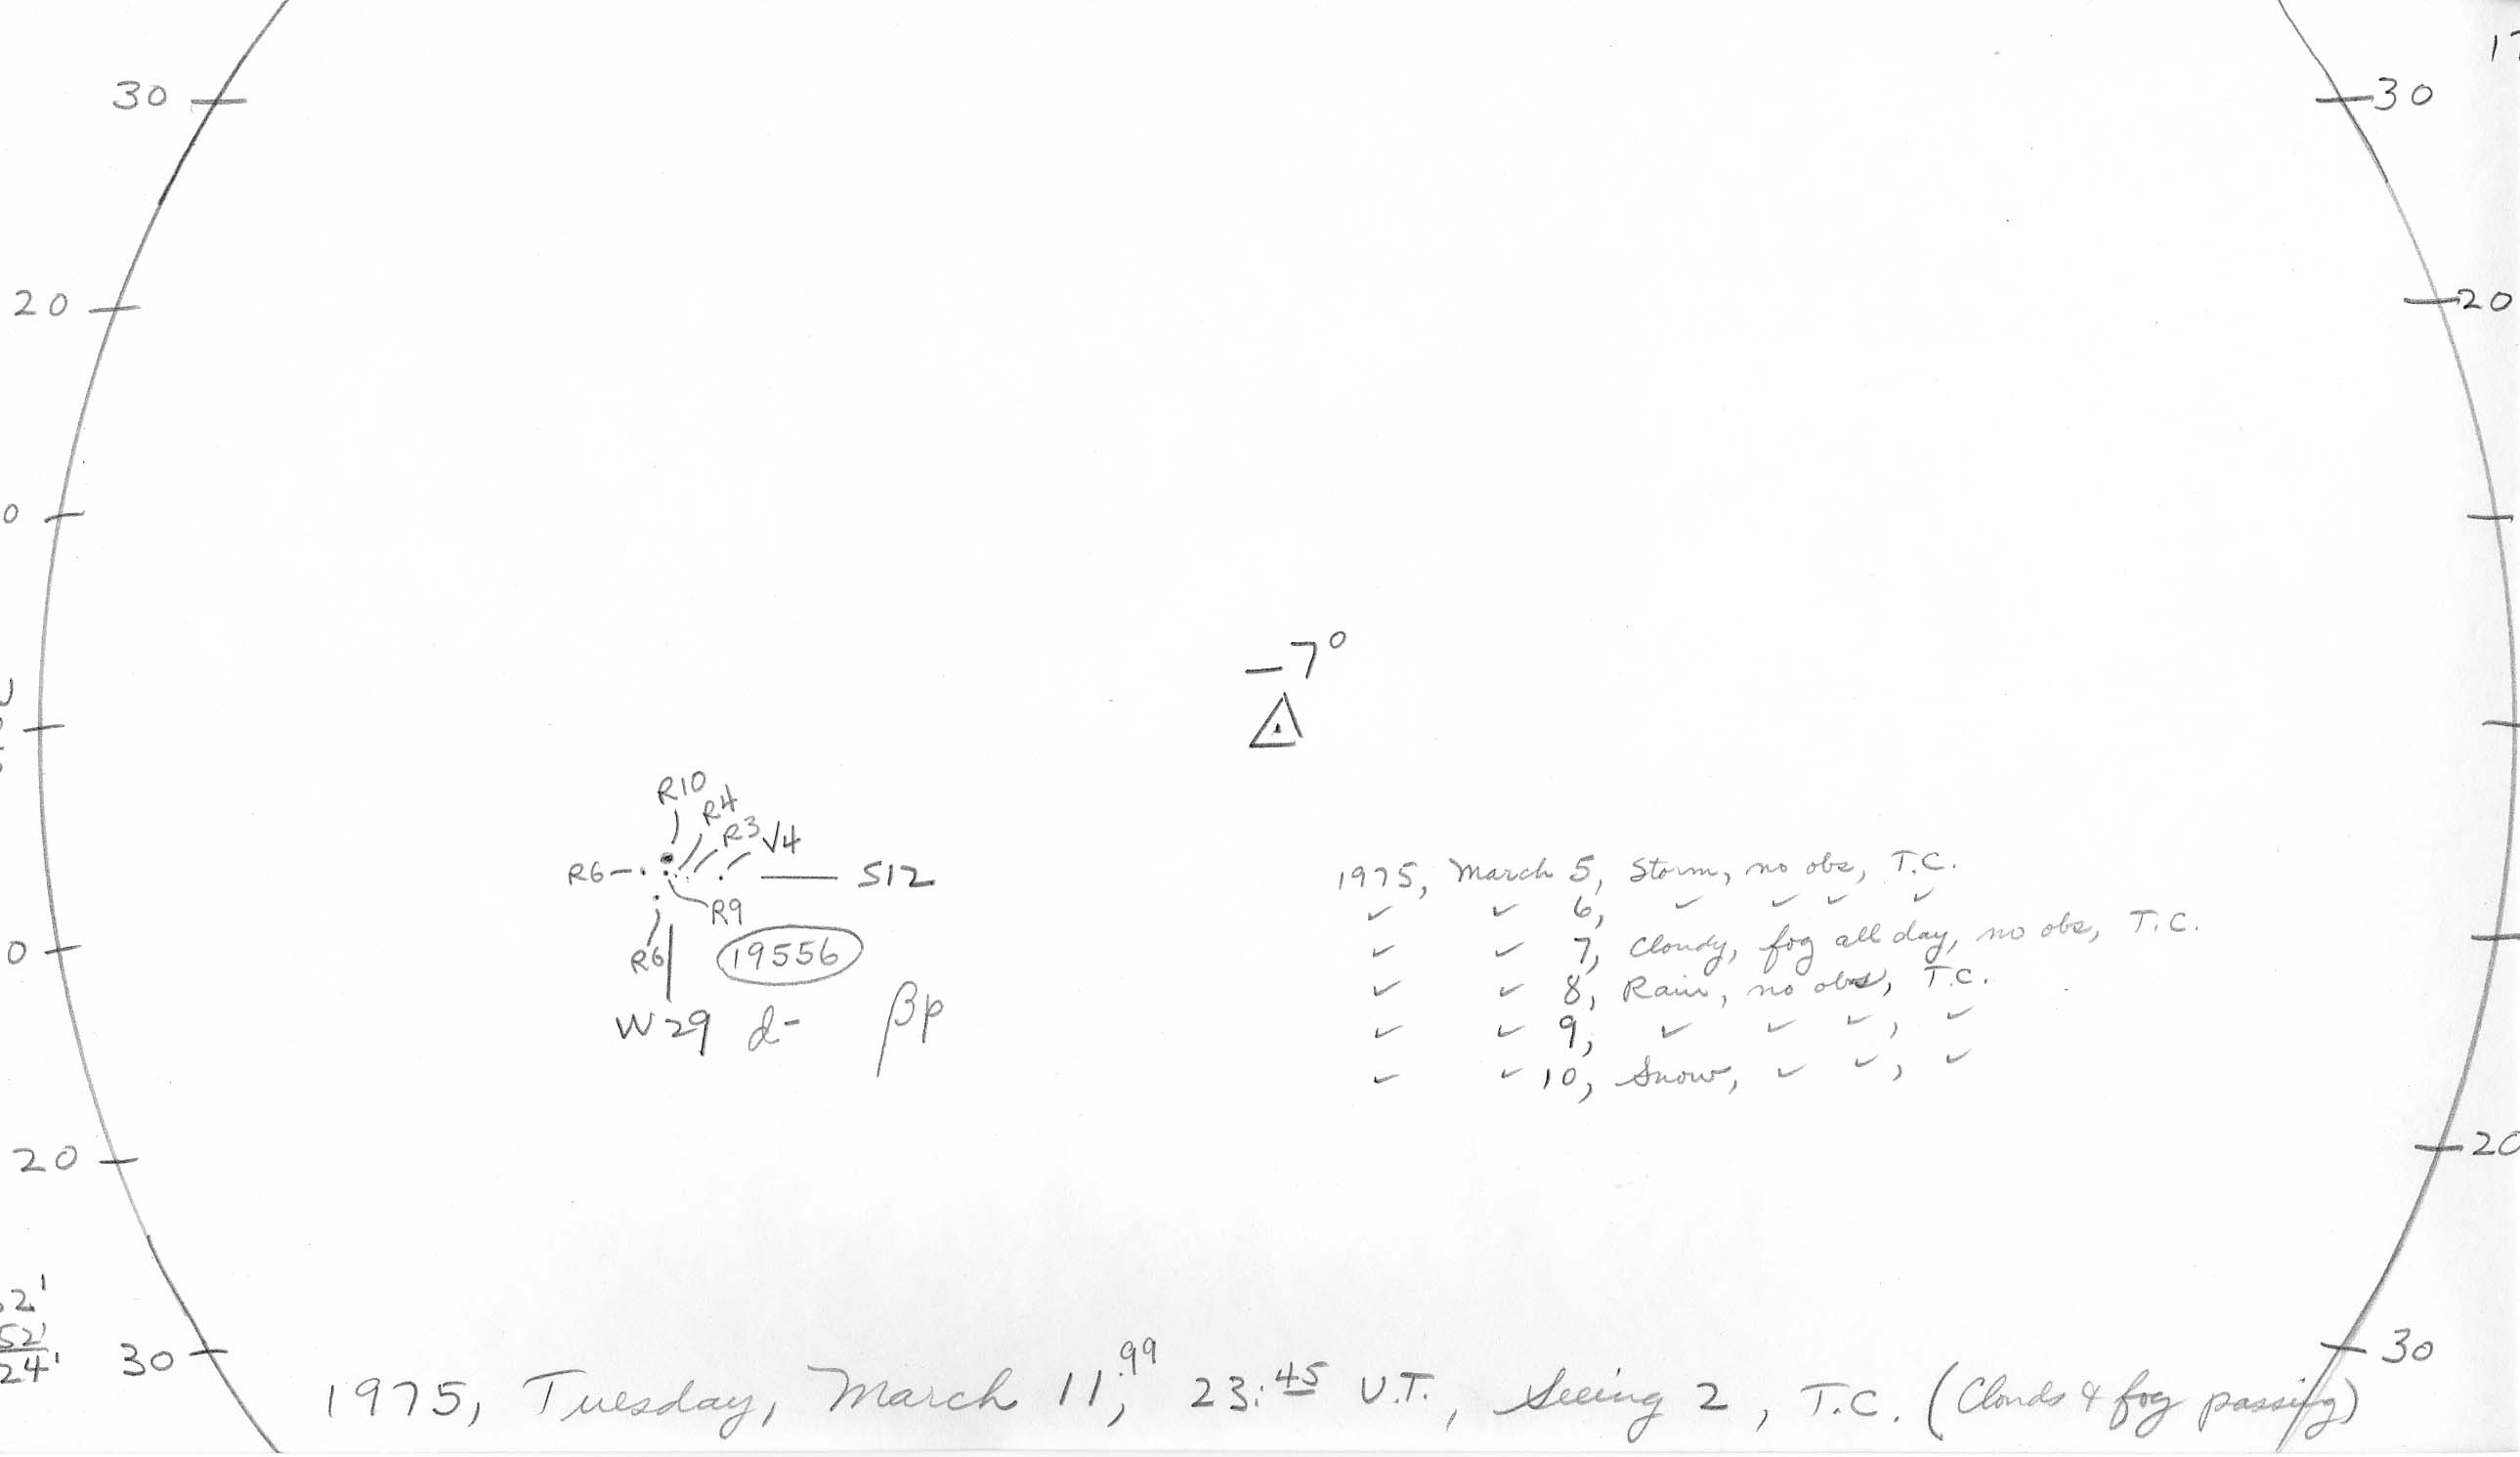 17
30
30
20
20
0
-7°
R10
R4
R3 V4
R6
S12
R9
R6
19556
0
W29 d- βp
1975, March 5, Storm, no obs, T.C.
✓ ✓ 6, ✓ ✓ ✓ ✓
✓ ✓ 7, Cloudy, fog all day, no obs, T.C.
✓ ✓ 8, Rain, no obs, T.C.
✓ ✓ 9, ✓ ✓ ✓, ✓
✓ ✓ 10, Snow, ✓ ✓, ✓
20
20
2'
52'
24'
30
30
1975, Tuesday, March 11.99, 23:45 U.T., Seeing 2, T.C. (Clouds & fog passing)